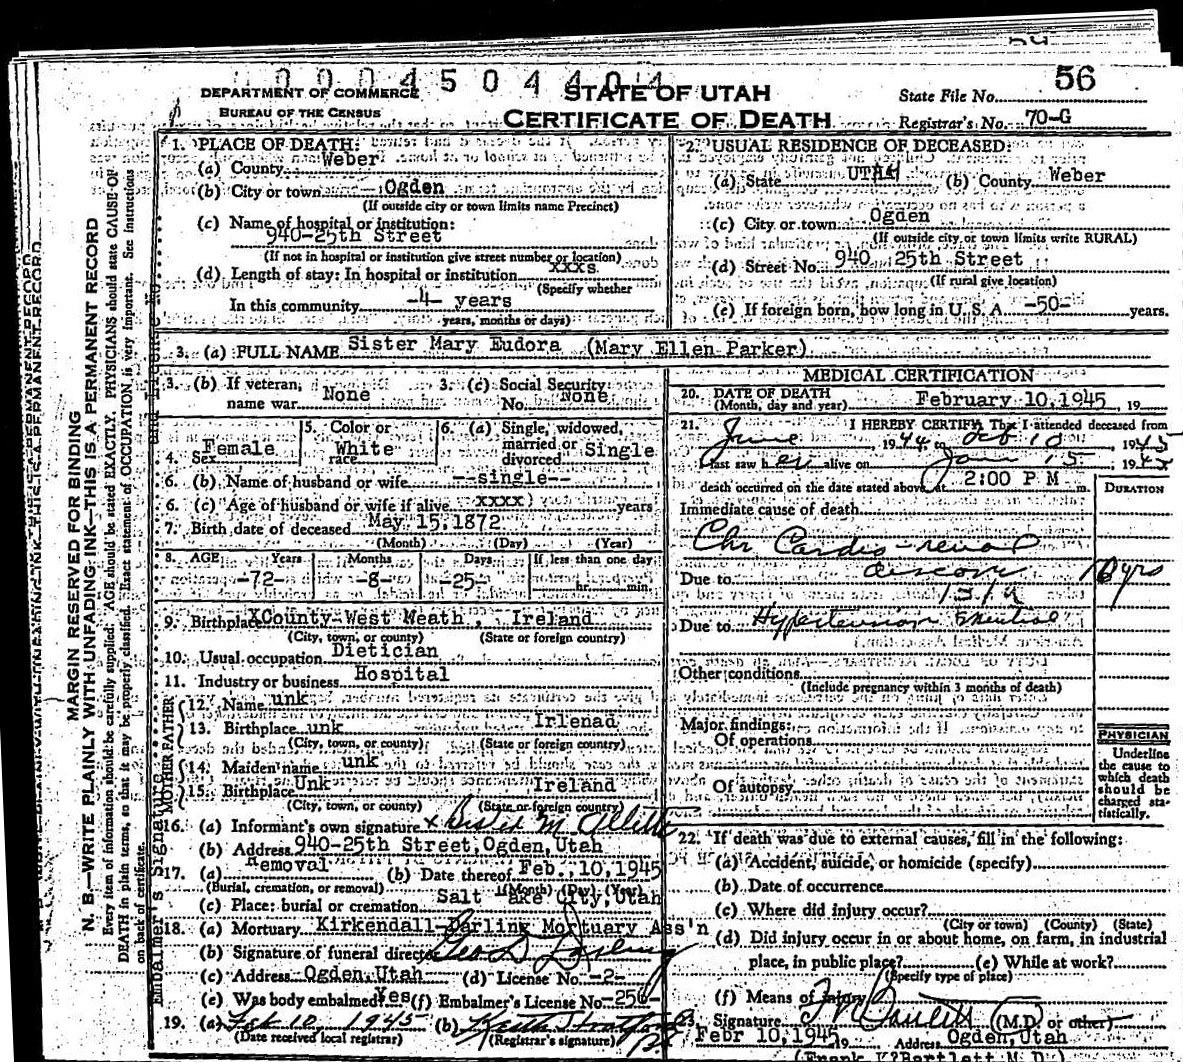 0 0 0 4 5 0 4 4 0 4
DEPARTMENT OF COMMERCE
BUREAU OF THE CENSUS
STATE OF UTAH
CERTIFICATE OF DEATH
State File No. 56
Registrar's No. 70-G
MARGIN RESERVED FOR BINDING
N. B.—WRITE PLAINLY WITH UNFADING INK—THIS IS A PERMANENT RECORD
Every item of information should be carefully supplied. AGE should be stated EXACTLY. PHYSICIANS should state CAUSE OF
DEATH in plain terms, so that it may be properly classified. Exact statement of OCCUPATION is very important. See instructions
on back of certificate.
1. PLACE OF DEATH:
(a) County Weber
(b) City or town Ogden
(If outside city or town limits name Precinct)
(c) Name of hospital or institution:
940-25th Street
(If not in hospital or institution give street number or location)
(d) Length of stay: In hospital or institution xxxs
(Specify whether
In this community -4- years
years, months or days)
2. USUAL RESIDENCE OF DECEASED:
(a) State UTAH (b) County Weber
(c) City or town Ogden
(If outside city or town limits write RURAL)
(d) Street No. 940 25th Street
(If rural give location)
(e) If foreign born, how long in U. S. A. -50- years.
3. (a) FULL NAME Sister Mary Eudora (Mary Ellen Parker)
3. (b) If veteran, name war None
3. (c) Social Security No. None
4. Sex Female
5. Color or race White
6. (a) Single, widowed, married or divorced Single
6. (b) Name of husband or wife --single--
6. (c) Age of husband or wife if alive xxxx years
7. Birth date of deceased May 15, 1872
(Month) (Day) (Year)
8. AGE Years Months Days If less than one day
-72- -8- -25- hr. min.
9. Birthplace XCounty-West Meath, Ireland
(City, town, or county) (State or foreign country)
10. Usual occupation Dietician
11. Industry or business Hospital
FATHER
12. Name unk
13. Birthplace unk Irlenad
(City, town, or county) (State or foreign country)
MOTHER
14. Maiden name unk
15. Birthplace Unk Ireland
(City, town, or county) (State or foreign country)
16. (a) Informant's own signature x Sister M.
(b) Address 940-25th Street, Ogden, Utah
17. (a) Removal (b) Date thereof Feb., 10, 1945
(Burial, cremation, or removal) (Month) (Day) (Year)
(c) Place: burial or cremation Salt ake City, Utah
18. (a) Mortuary Kirkendall-Darling Mortuary Ass'n
(b) Signature of funeral director Geo D Darling
(c) Address Ogden, Utah (d) License No. -2-
(e) Was body embalmed? Yes (f) Embalmer's License No. 256-
19. (a) Feb 10, 1945 (b) Keith
(Date received local registrar) (Registrar's signature)
Embalmer's Signature
MEDICAL CERTIFICATION
20. DATE OF DEATH
(Month, day and year) February 10, 1945, 19
21. I HEREBY CERTIFY, That I attended deceased from
June 1944 to Feb 10 1945
I last saw her alive on Jan 15, 1945
death occurred on the date stated above, at 2:00 P M m.
DURATION
Immediate cause of death
Chr Cardio-renal
Due to disease 10 yrs
131a
Due to Hypertension Essential
Other conditions
(Include pregnancy within 3 months of death)
Major findings:
Of operations
Of autopsy
PHYSICIAN
Underline
the cause to
which death
should be
charged sta-
tistically.
22. If death was due to external causes, fill in the following:
(a) Accident, suicide, or homicide (specify)
(b) Date of occurrence
(c) Where did injury occur?
(City or town) (County) (State)
(d) Did injury occur in or about home, on farm, in industrial
place, in public place? (e) While at work?
(Specify type of place)
(f) Means of Injury
23. Signature Bartlett (M.D. or other)
Febr 10, 1945 19 Address Ogden, Utah
(Frank K?Bartlett M.D.)